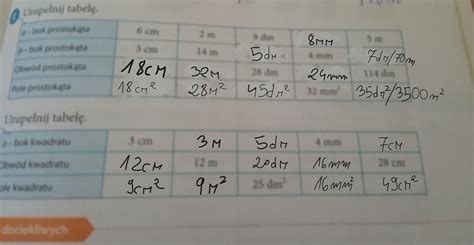 Uzupełnij tabelę.
a - bok prostokąta 6 cm 2 m 9 dm 8мм 5 m
b - bok prostokąta 3 cm 14 m 5dм 4 mm 7dм/70m
Obwód prostokąta 18см 32м 28 dm 24mm 114 dm
Pole prostokąta 18см² 28м² 45dм² 32 mm² 35dм²/3500m²
Uzupełnij tabelę.
a - bok kwadratu 3 cm 3м 5dм 4 mm 7см
Obwód kwadratu 12см 12 m 20dм 16mm 28 cm
Pole kwadratu 9см² 9м² 25 dm² 16mm² 49см²
dociekliwych